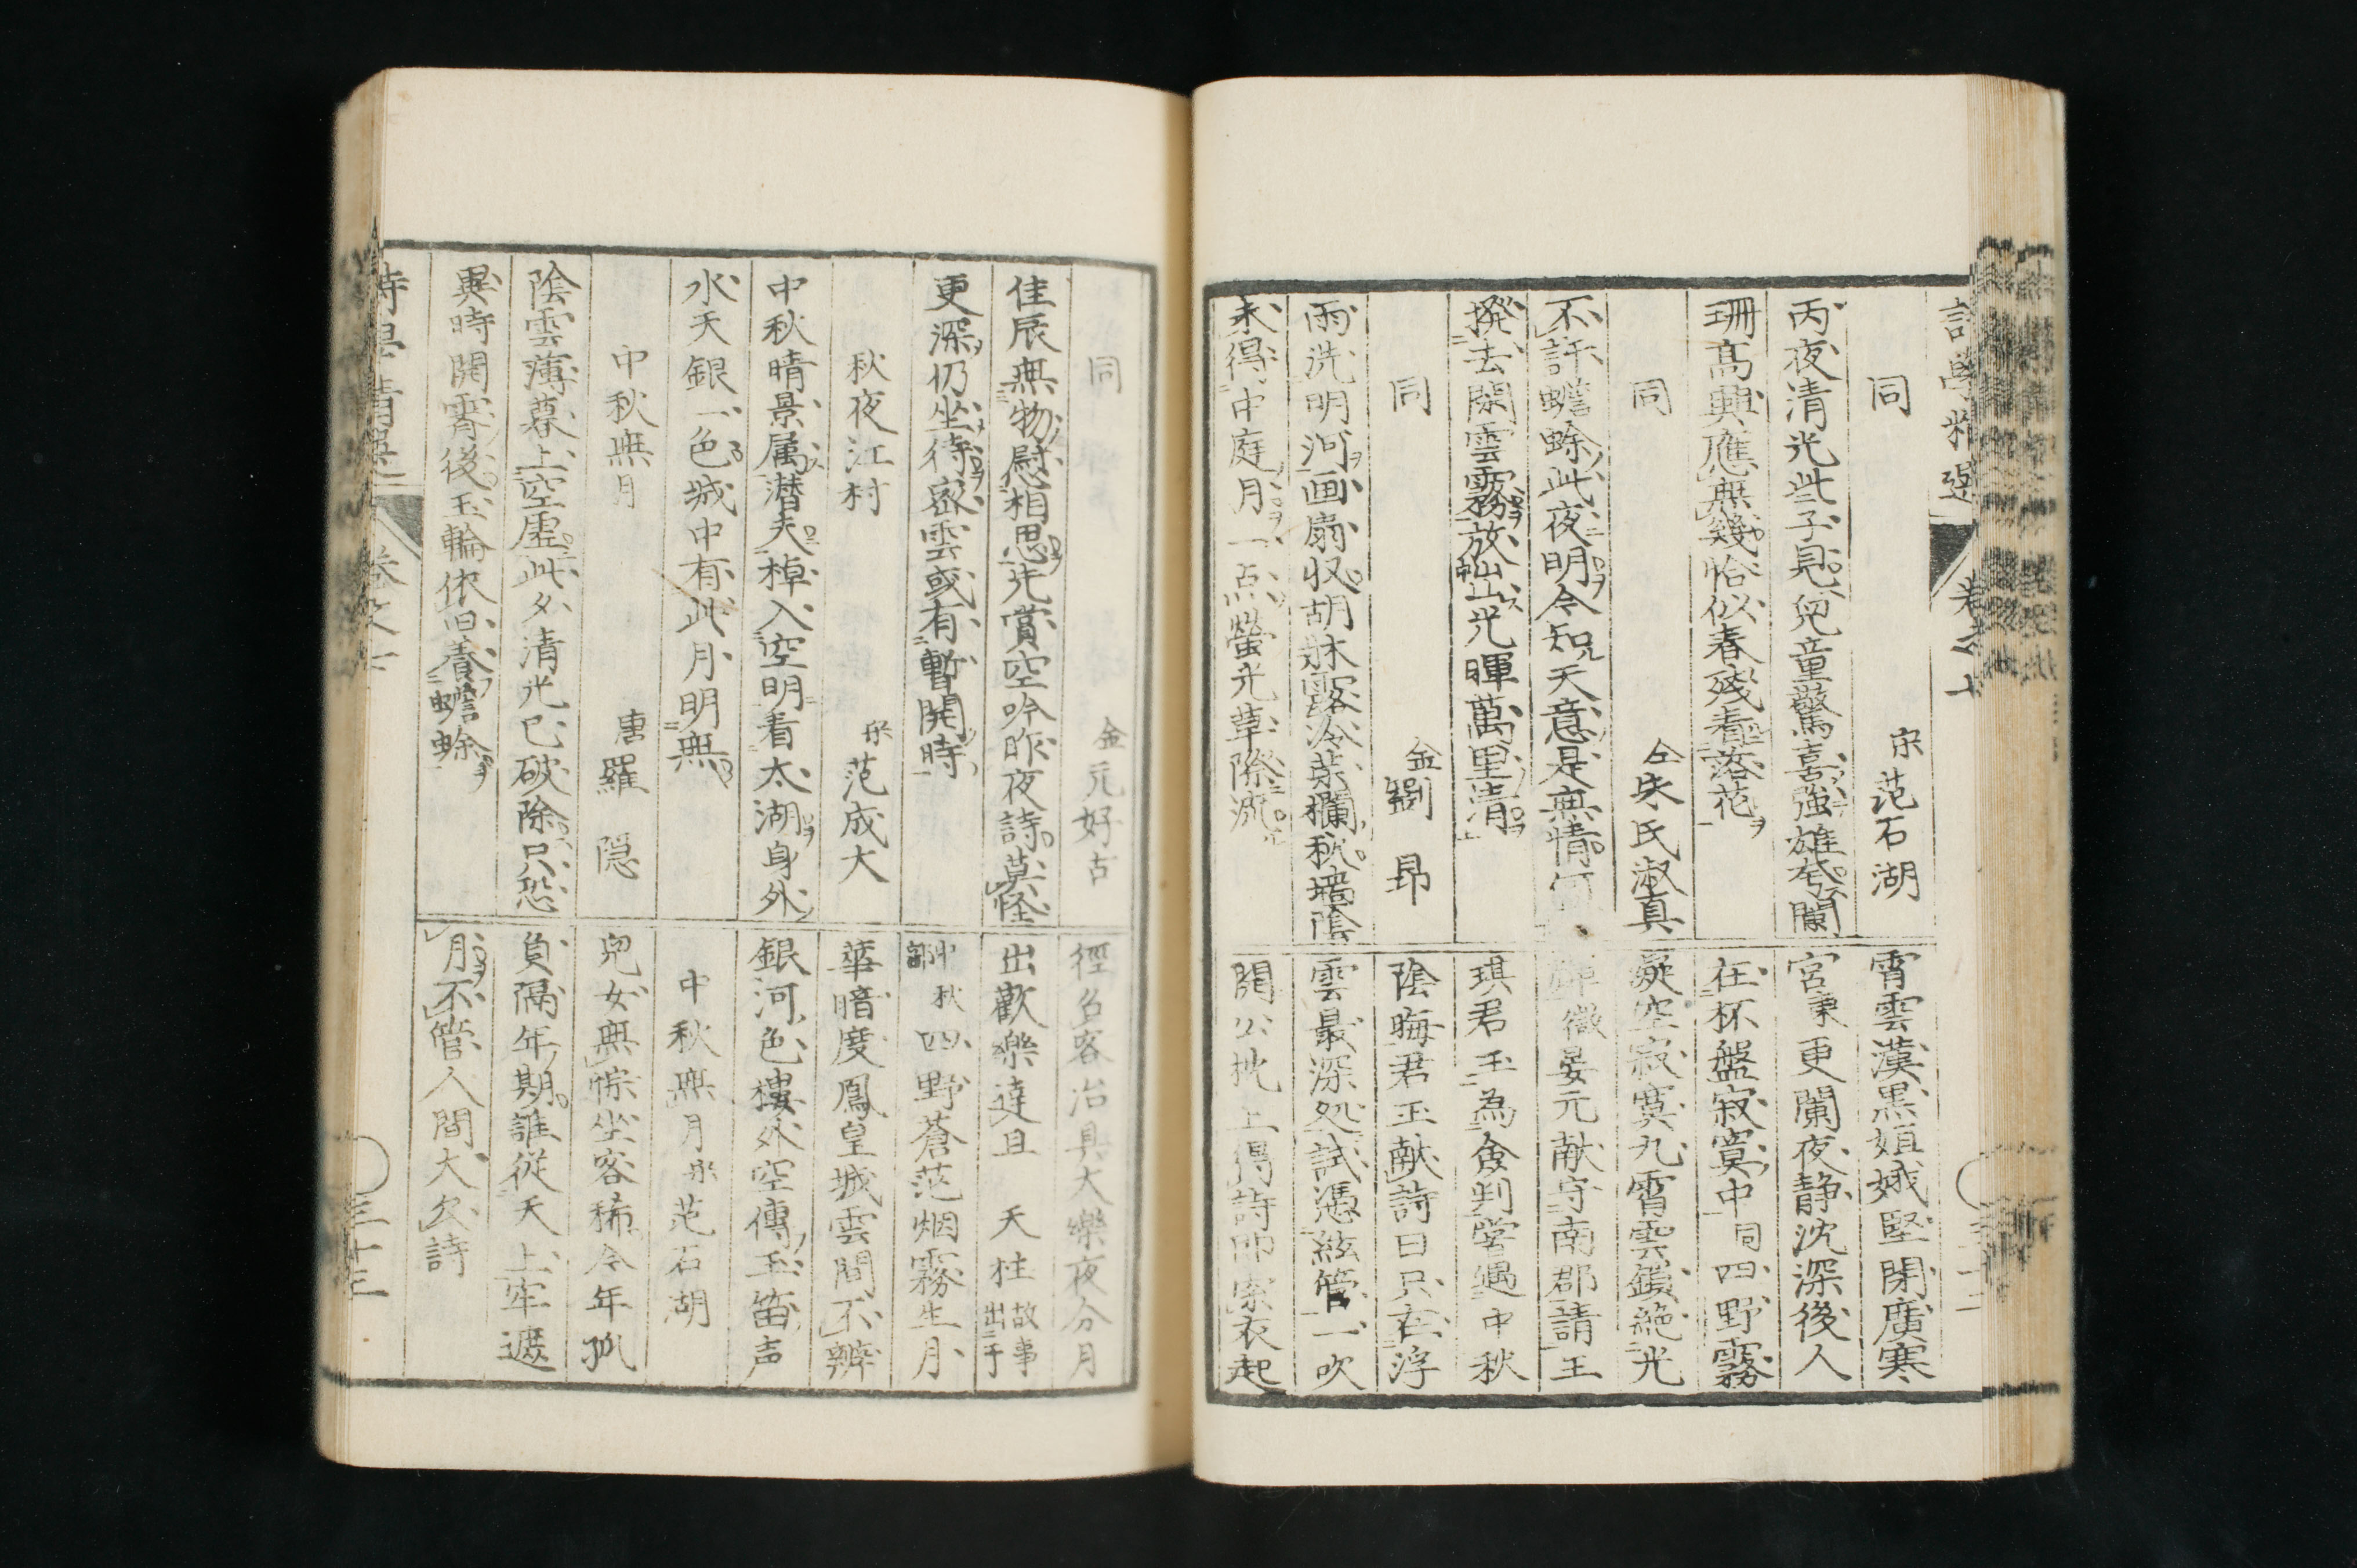 同
宋 范石湖
丙夜清光些子見兒童驚喜強雄夸闌
珊高興應無幾恰似春殘看落花
同
仝 朱氏淑真
不許蟾蜍此夜明今知天意是無情何
撥去閑雲霧放出光暉萬里清
同
金 劉昂
雨洗明河画扇収胡牀露冷菜欄秋墻陰
未得中庭月一点螢光草際流
霄雲漢黒姮娥堅閉廣寒
宮秉更闌夜静沈深後人
在杯盤寂寞中 同 四野霧
凝空寂寞九霄雲鎖絶光
輝微 晏元献守南郡請王
琪君玉為食判嘗遇中秋
陰晦君玉献詩曰只在浮
雲最深処試憑絃管一吹
開公枕上得詩即索衣起
同
金 元好古
佳辰無物慰相思先賞空吟昨夜詩莫怪
更深仍坐待密雲或有暫開時
秋夜江村
宋 范成大
中秋晴景属潜夫棹入空明看太湖身外
水天銀一色城中有此月明無
中秋無月
唐 羅隠
陰雲薄暮上空虚此夕清光已破除只恐
異時開霽後玉輪依旧養蟾蜍
徑召客治具大樂夜分月
出歡樂達旦 天柱 故事出于
中秋部 四野蒼茫烟霧生月
華暗度鳳皇城雲間不辨
銀河色樓外空傳玉笛声
中秋無月 宋 范石湖
兒女無悰坐客稀今年孤
負隔年期誰從天上牢遮
月不管人間大欠詩
詩學精選
巻之七
三十三